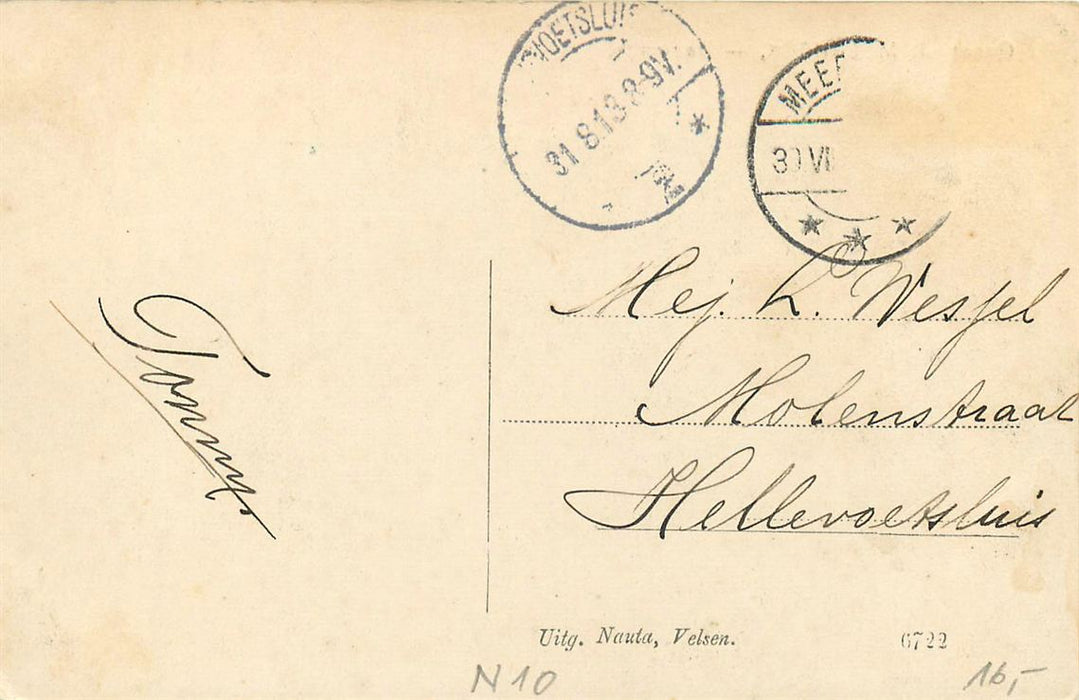 VOETSLUI
31.8.13.8-9V.
MEER
30 VII
Mej. L. Wessel
Molenstraat
Hellevoetsluis
Uitg. Nauta, Velsen. 6722
N10 16,-